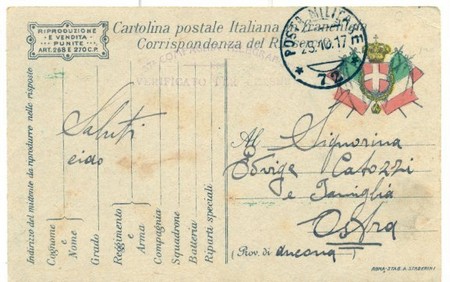 RIPRODUZIONE
E VENDITA
PUNITE
ART. 268 E 270 C.P.
Cartolina postale Italiana in franchigia
Corrispondenza del R. Esercito
POSTA MILITARE
29.10.17
72
VERIFICATO PER CENSURA
Indirizzo del mittente da riprodurre nelle risposte
Cognome
e
Nome
Grado
Reggimento
e
Arma
Compagnia
Squadrone
Batteria
Riparti speciali
Saluti
All Signorina
Edvige Catozzi
e Famiglia
Ostra
(Prov. di Ancona)